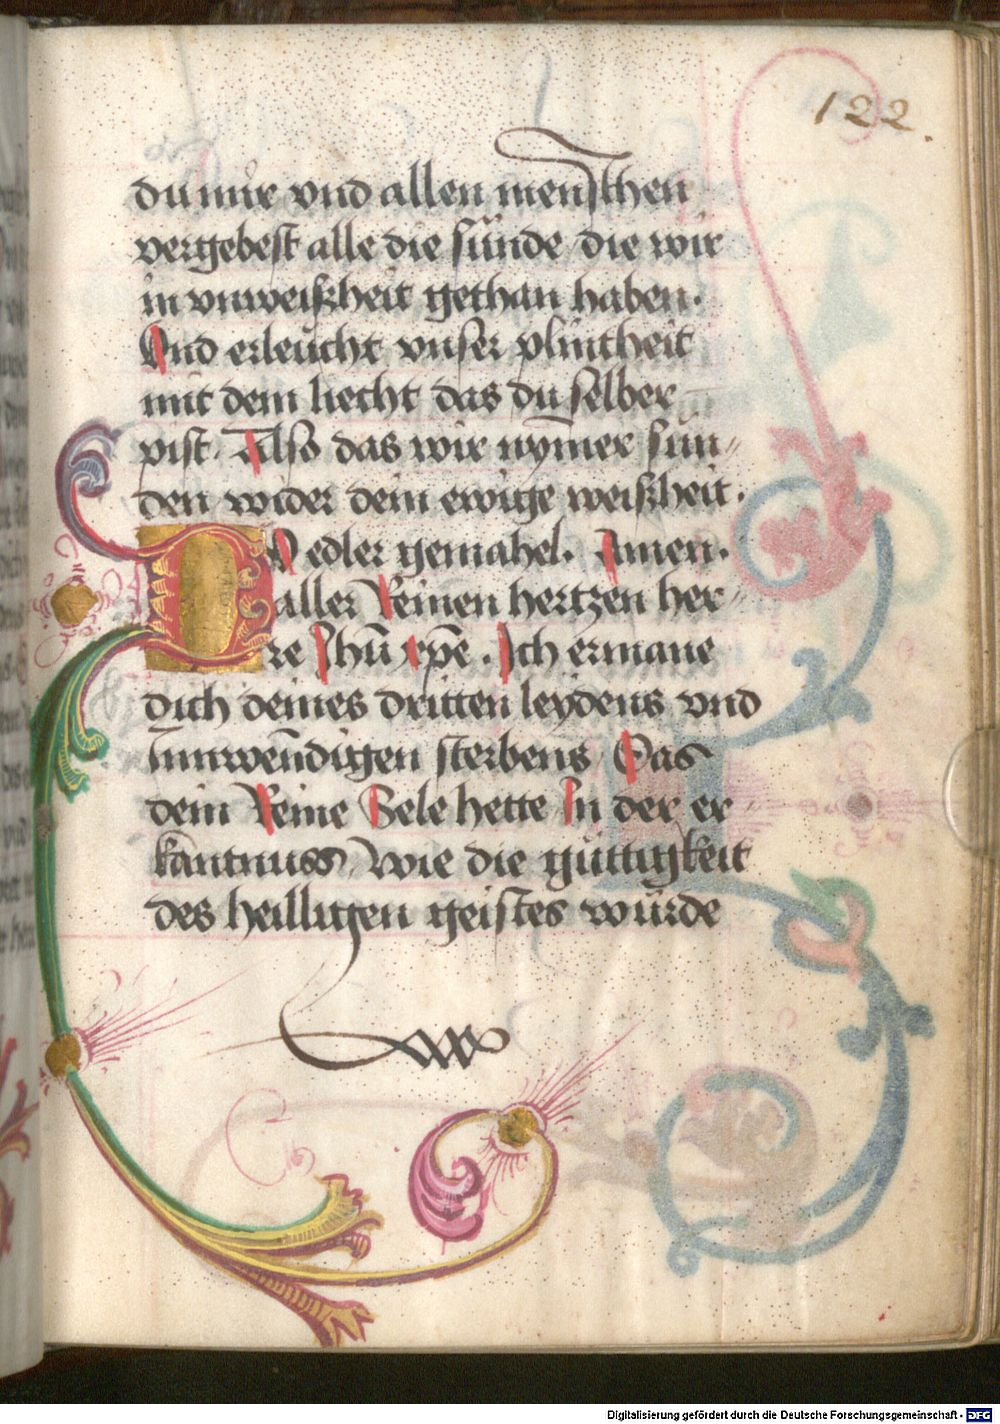 122.
du mir vnd allen menschen
vergebest alle die sünde / die wir
in vnweißheit gethan haben.
Vnd erleücht vnser plintheit
mit dem liecht das du selber
pist. Also das wir nym̄er sün„
den wider dein ewige weißheit.
O edler gemahel. Amen.
aller Reinen hertzen her„
re Jhū xp̄e. Ich ermane
dich deines dritten leydens vnd
Innwēndigen sterbens / Das
dein Reine Sele hette In der er„
kantnuss / Wie die güttigkeit
des heilligen geistes würde
Digitalisierung gefördert durch die Deutsche Forschungsgemeinschaft - DFG